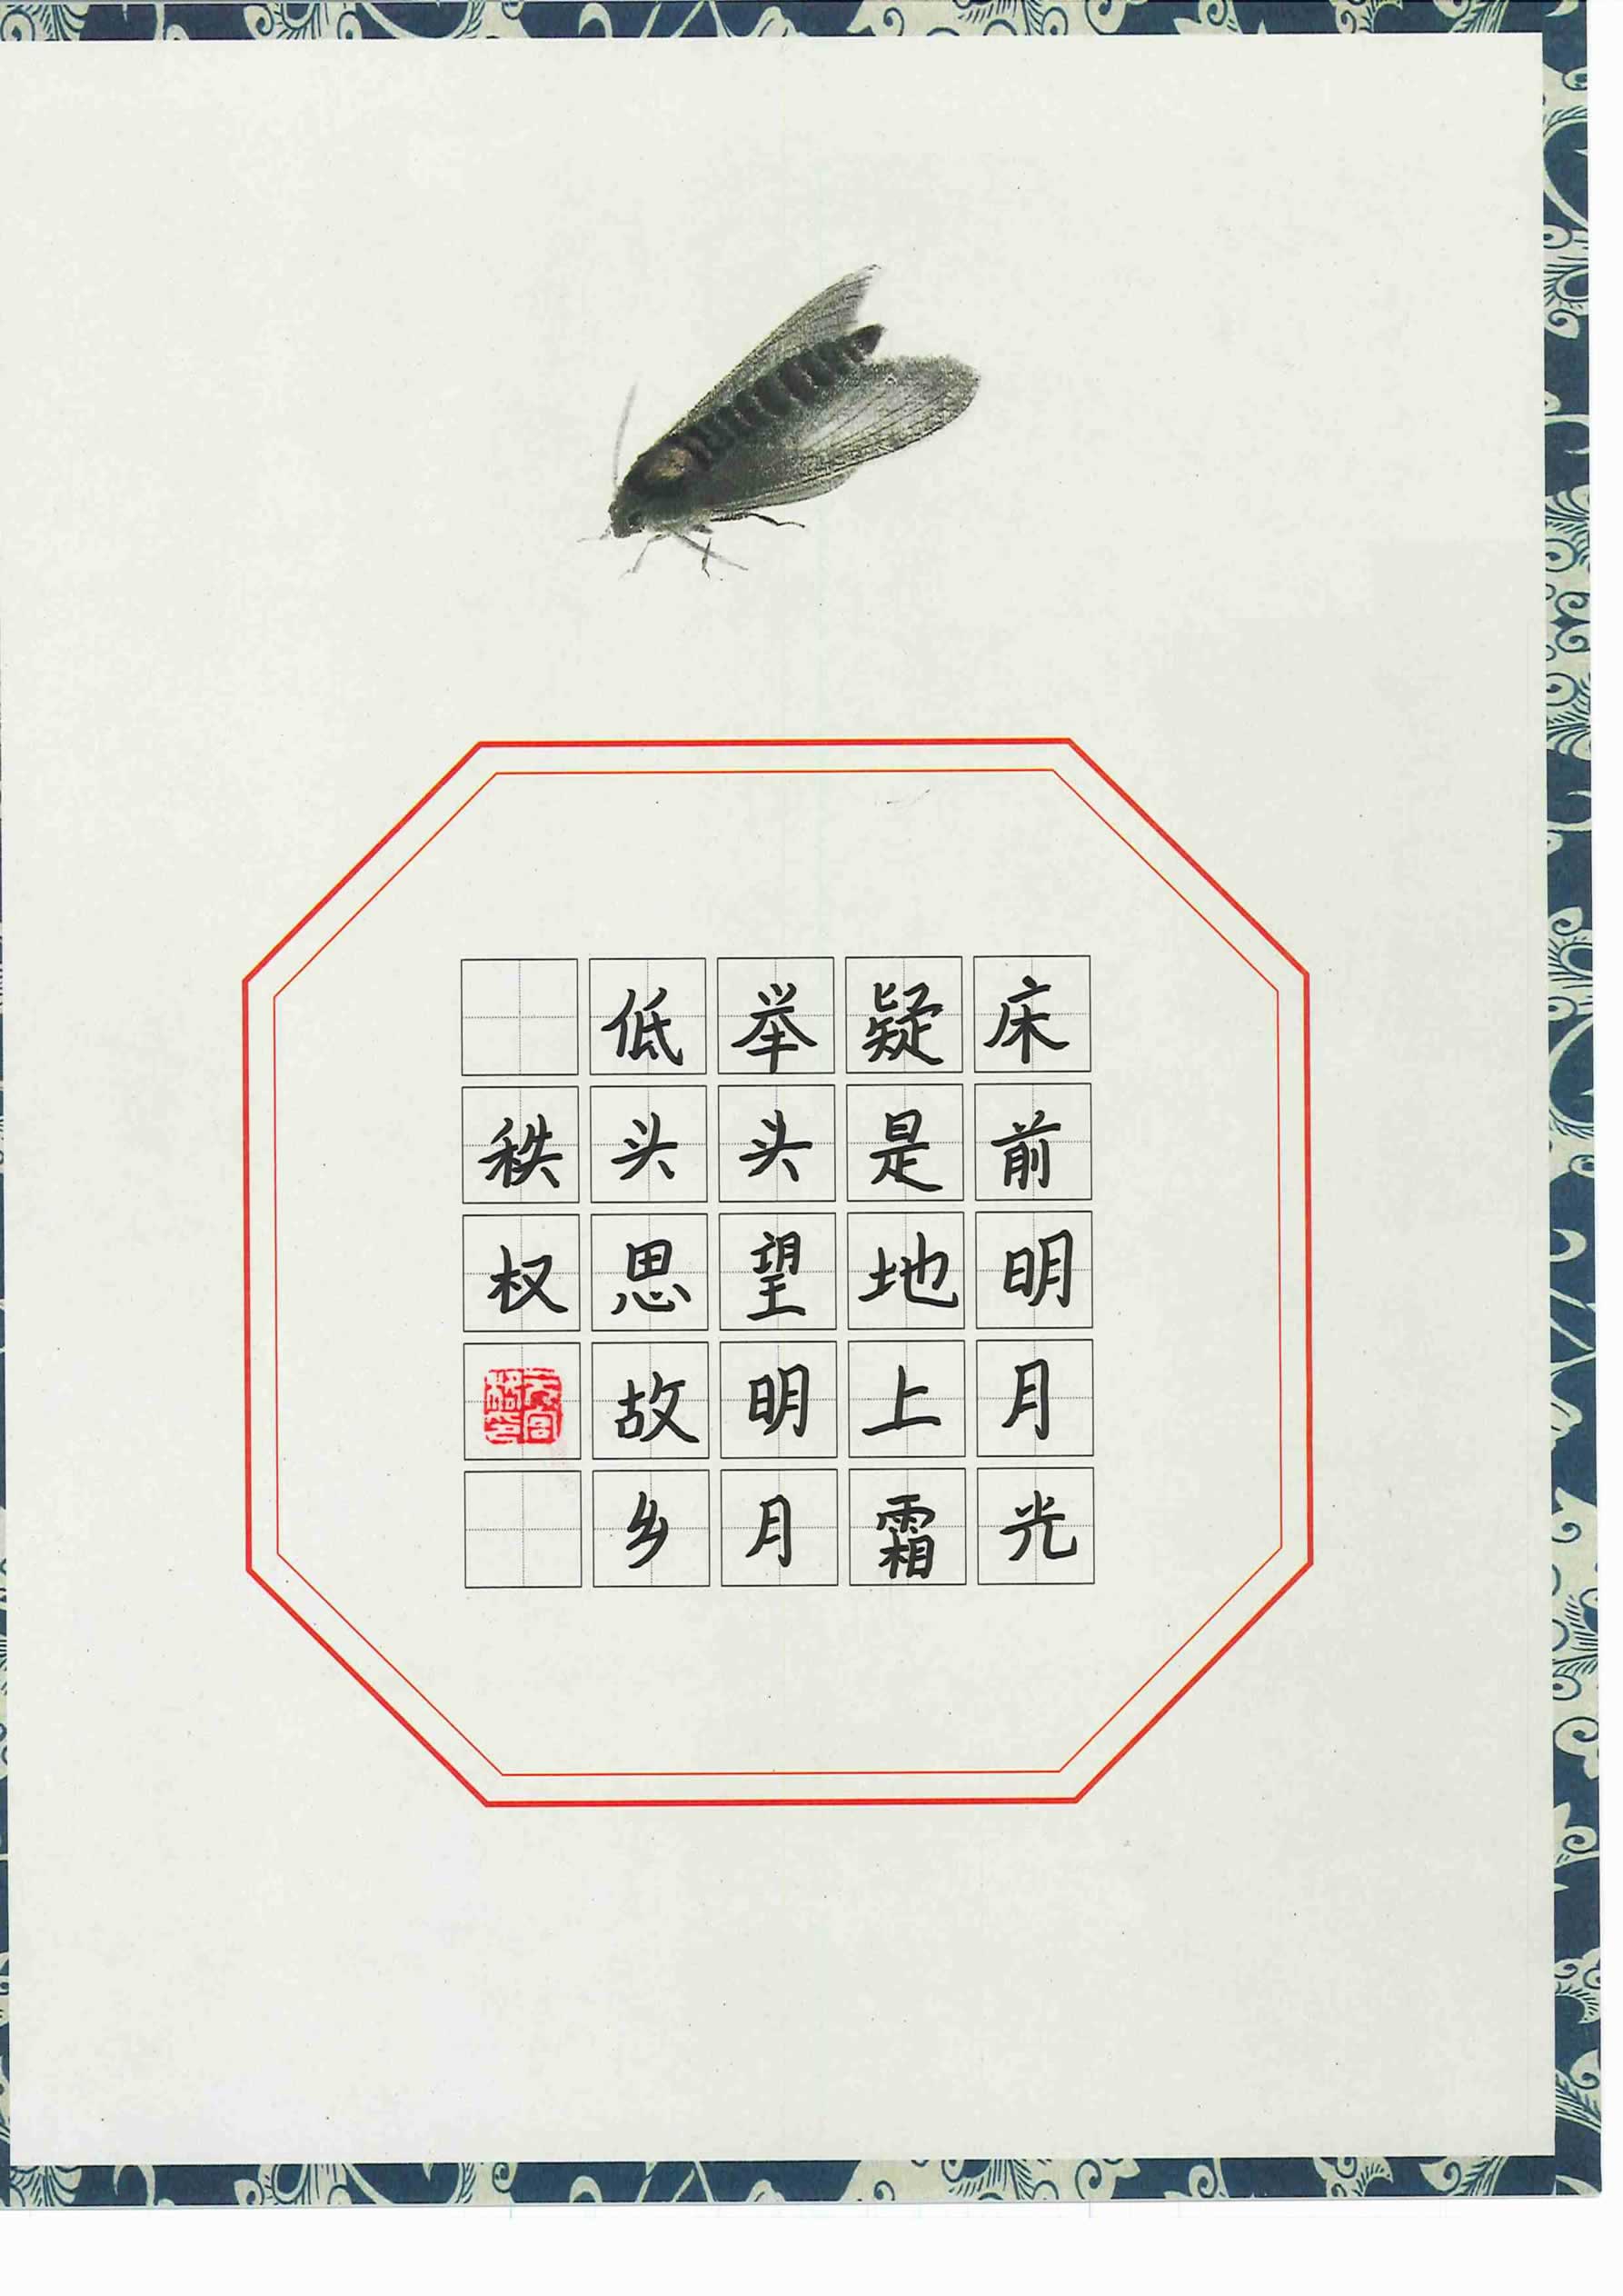 床前明月光
疑是地上霜
举头望明月
低头思故乡
秩权